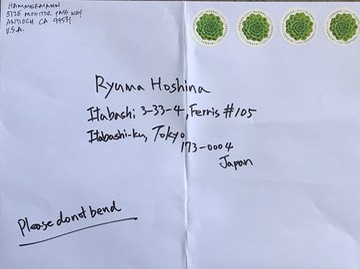 HAMMERMANN
5126 MONITOR PASS WAY
ANTIOCH CA 94531
U.S.A.
Ryuma Hoshina
Itabashi 3-33-4, Ferris #105
Itabashi-ku, Tokyo
173-0004
Japan
Please do not bend